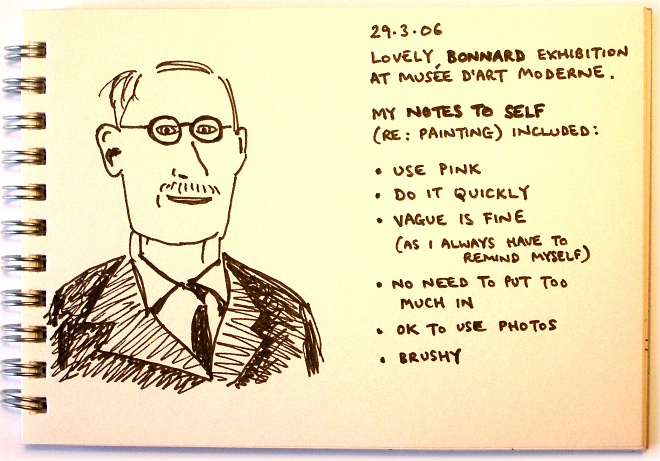 29.3.06
LOVELY BONNARD EXHIBITION
AT MUSÉE D'ART MODERNE.
MY NOTES TO SELF
(RE: PAINTING) INCLUDED:
• USE PINK
• DO IT QUICKLY
• VAGUE IS FINE
(AS I ALWAYS HAVE TO
REMIND MYSELF)
• NO NEED TO PUT TOO
MUCH IN
• OK TO USE PHOTOS
• BRUSHY